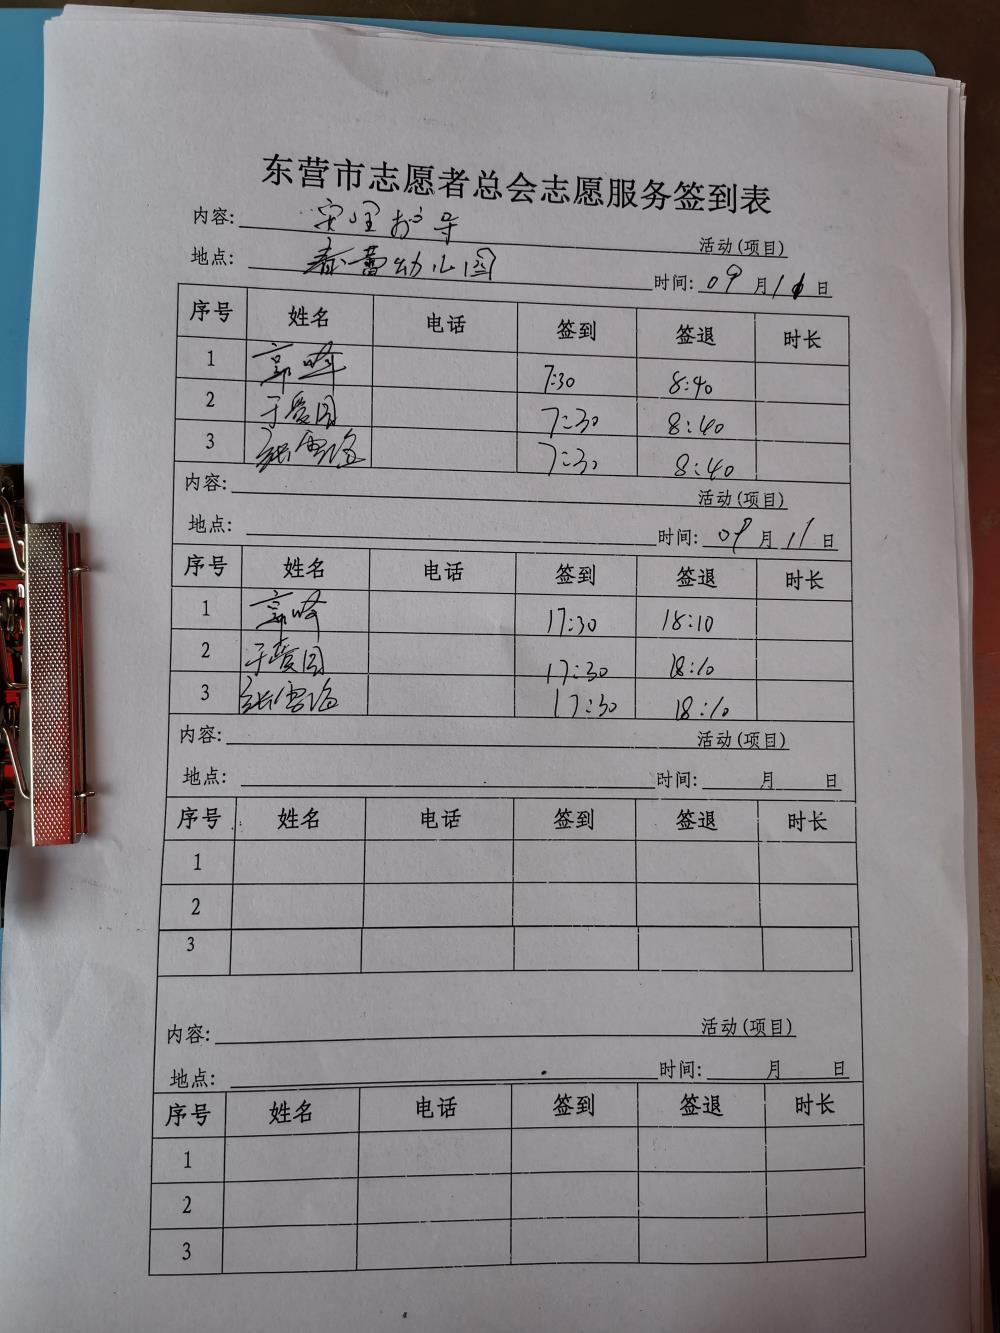 东营市志愿者总会志愿服务签到表
内容: 安全护导 活动(项目)
地点: 春蕾幼儿园 时间: 09 月 11 日
序号 姓名 电话 签到 签退 时长
1 郭峰 7:30 8:40
2 于爱国 7:30 8:40
3 张雪 7:30 8:40
内容: 活动(项目)
地点: 时间: 09 月 11 日
序号 姓名 电话 签到 签退 时长
1 郭峰 17:30 18:10
2 于爱国 17:30 18:10
3 张雪 17:30 18:10
内容: 活动(项目)
地点: 时间: 月 日
序号 姓名 电话 签到 签退 时长
1
2
3
内容: 活动(项目)
地点: 时间: 月 日
序号 姓名 电话 签到 签退 时长
1
2
3